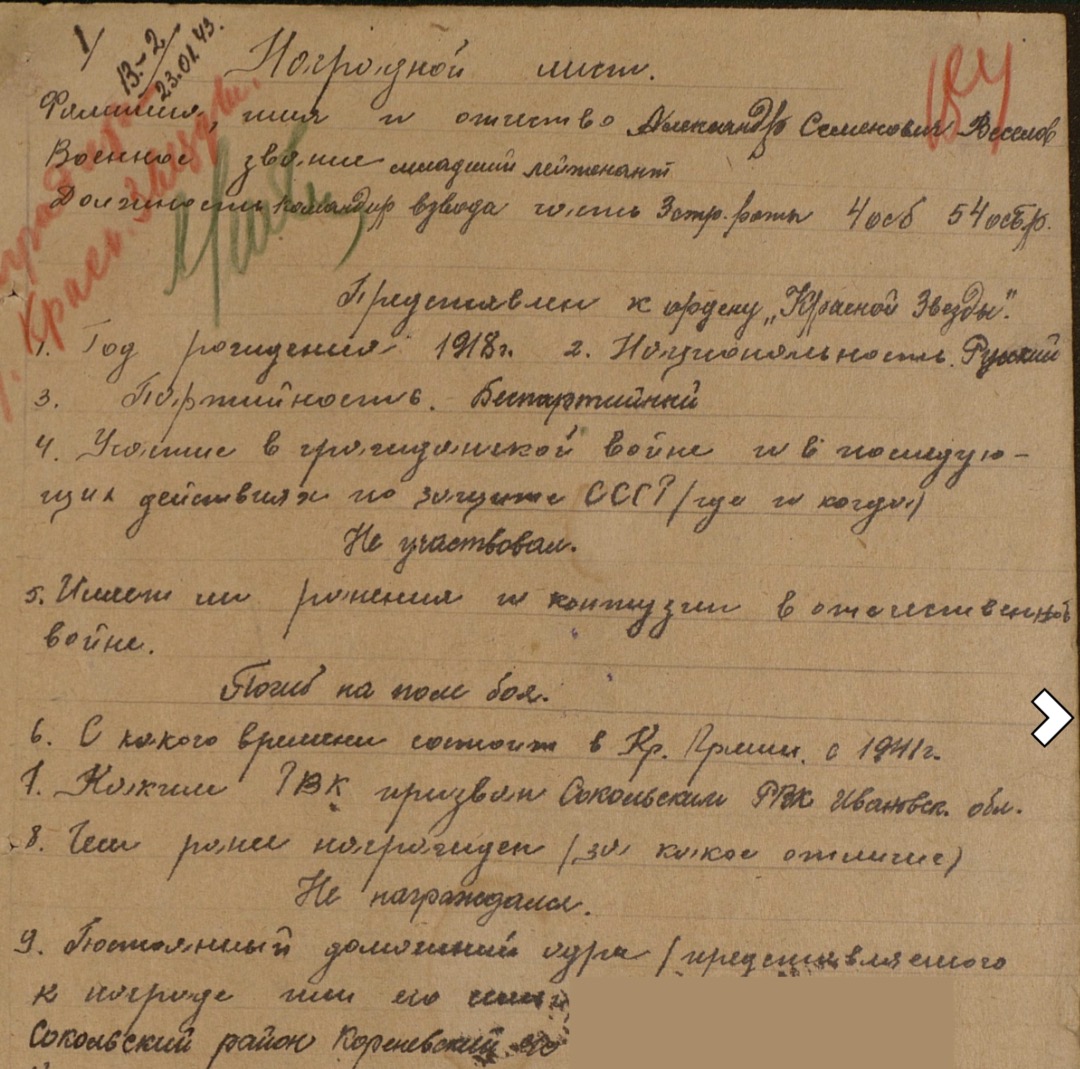 1/
13-2/
23.01.43.
184
Красн. Звезды.
Наградной лист.
Фамилия, имя и отчество Александр Семенович Веселов
Военное звание младший лейтенант
Должность командир взвода часть 3 стр. роты 4 осб 54 осбр.
Представлен к ордену „Красной Звезды".
1. Год рождения 1918 г. 2. Национальность. Русский
3. Партийность. Беспартийный
4. Участие в гражданской войне и в последую-
щих действиях по защите СССР /где и когда/
Не участвовал.
5. Имеет ли ранения и контузии в отечественной
войне.
Погиб на поле боя.
6. С какого времени состоит в Кр. Армии. с 1941 г.
7. Каким РВК призван Сокольским РВК Ивановск. обл.
8. Чем ранее награжден /за какое отличие/
Не награждался.
9. Постоянный домашний адрес /представляемого
к награде или его
Сокольский район Кореневский